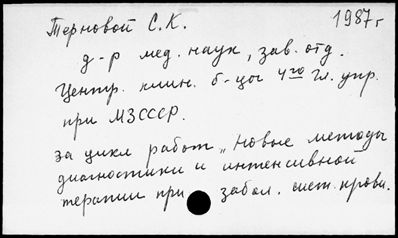 Терновой С.К. 1987 г
д-р мед. наук, зав. отд.
Центр. клин. б-цы 4го гл. упр.
при МЗСССР.
за цикл работ „Новые методы
диагностики и интенсивной
терапии при забол. сист. крови.